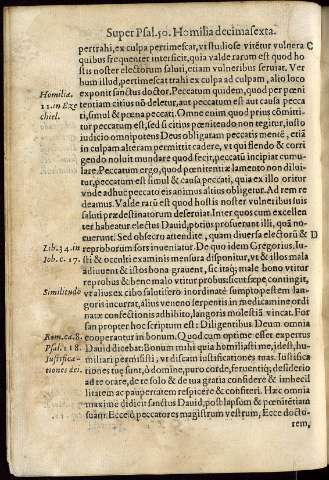 Super Psal.50. Homilia decimasexta.
pertrahi, ex culpa pertimescat, vt studiose vitẽtur vulnera C
quibus frequenter inficit, quia valde rarum est quod ho
stis noster electorum saluti, etiam vulneribus seruiat. Ver
bum illud, pertimescat trahi ex culpa ad culpam, alio loco
Homilia. exponit sanctus doctor. Peccatum quidem, quod per pœni
11. in Eze tentiam citius nõ deletur, aut peccatum est aut causa pecca
chiel. ti, simul & pœna peccati. Omne enim quod prius cõmitti-
tur peccatum est, sed si citius pœnitendo non tegitur, iusto
iudicio omnipotens Deus obligatam peccatis mentẽ, etiã
in culpam alteram permittit cadere, vt qui flendo & corri
gendo noluit mundare quod fecit, peccatũ incipiat cumu-
lare. Peccatum ergo, quod pœnitentiæ lamento non dilui-
tur, peccatum est simul & causa peccati, quia ex illo oritur
vnde adhuc peccato eis animus altius obligetur. Ad rem re
deamus. Valde rarũ est quod hostis noster vulneribus suis
saluti prædestinatorum deseruiat. Inter quos cum excellen
ter habeatur electus Dauid, potius profuerunt illi, quã no-
cuerunt. Sed obsecro attendite, quam diuersa electorũ & D
Lib.34.in reproborum sors inueniatur. De quo idem Gregorius, Iu-
Iob.c. 17. sti & occulti examinis mensura disponitur, vt & illos mala
adiuuent & istos bona grauent, sic itaq; male bono vtitur
reprobus & bene malo vtitur probus sicut sæpe contingit,
Similitudo vt alius ex cibo salutifero inordinate sumpto pestem lan-
goris incurrat, alius veneno serpentis in medicamine ordi
natæ confectionis adhibito, langoris molestiã vincat. For
san propter hoc scriptum est: Diligentibus Deum omnia
Rom.ca.8. cooperatur in bonum. Quod cum optime esset expertus
Psal. 118. Dauid dicebat. Bonum mihi quia humiliasti me, idest, hu-
Iustifica- miliari permisisti, vt discam iustificationes tuas. Iustifica
tiones dei. tiones tuę sunt, ô domine, puro corde, feruentiq; desiderio
ad te orare, de te solo & de tua gratia confidere & imbecil
litatem ac paupertatem respicere & confiteri. Hæc omnia
maxime didicit sanctus Dauid, post lapsum & pœnitẽtiam
suam. Ecce ô peccatores magistrum vestrum, Ecce docto-
rem,